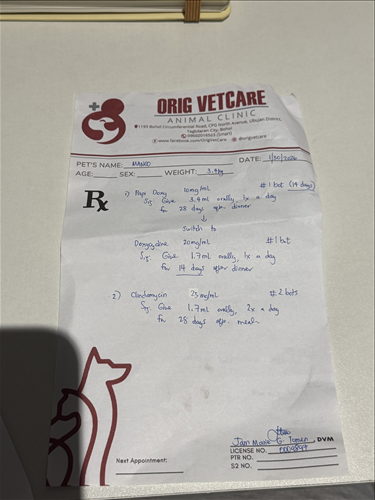 ORIG VETCARE
ANIMAL CLINIC
1193 Bohol Circumferential Road, CPG North Avenue, Ubujan District,
Tagbilaran City, Bohol
(Smart)
www.facebook.com/OrigVetCare @origvetcare
PET'S NAME: MANGO DATE:
AGE: SEX: WEIGHT: 3.4kg
Rx
1) Papi Doxy 10mg/ml #1 bot (14 days)
Sig. Give 3.4ml orally, 1x a day
for 28 days after dinner
↓
Switch to
Doxycycline 20mg/ml #1 bot
Sig. Give 1.7ml orally, 1x a day
for 14 days after dinner
2) Clindamycin 25mg/ml #2 bots
Sig. Give 1.7ml orally, 2x a day
for 28 days after meals
Jan Marie G. , DVM
LICENSE NO.
PTR NO.
S2 NO.
Next Appointment: